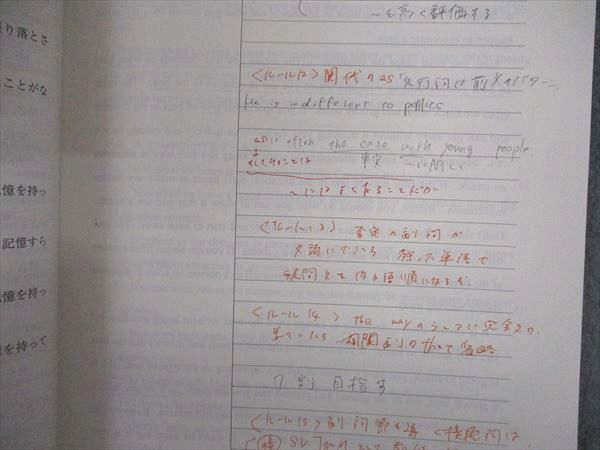 り落とさ
ことがな
憶を持っ
記憶すら
憶を持っ
を持って
〜を高く評価する
<ルール12>関代のas「先行詞は前文のパターン」
He is indifferent to politics
as is often the case with young people
〜にはよくあることだが
<ルール13> 否定の副詞が
文頭にでたら、残った単語で
疑問文を作る語順になるぞ。
<ルール14> the wayのうしろに完全文が
きていたら、関副のthatの省略
7割目指す
<ルール15>副詞節を導く接続詞は、